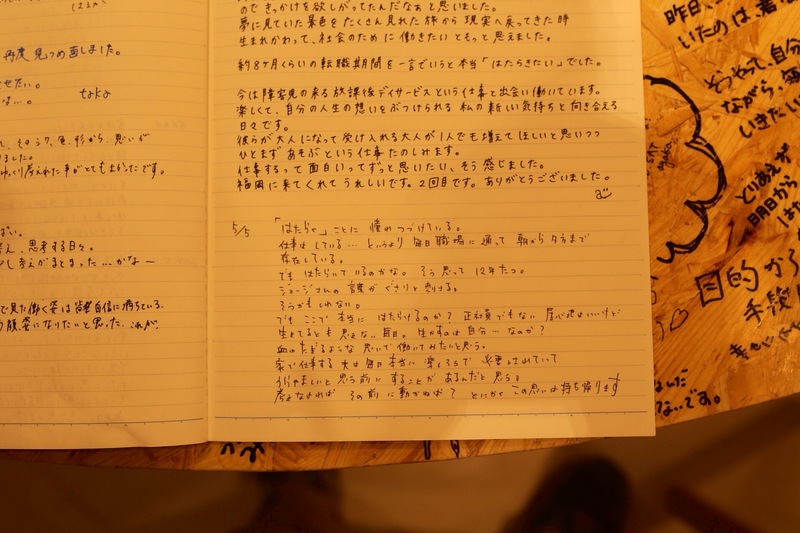 12ヵ月
再度 見つめ直しました。
せたい。
toko
ました。
ばい。
え、思考する日々。
考えがまとまった…かなー
で見た働く姿は皆自信に満ちている。
顔、姿になりたいと思った。
ので きっかけを欲しがってたんだなぁと思いました。
夢に見ていた景色をたくさん見れた旅から 現実へ戻ってきた時
生まれかわって、社会のために働きたいともっと思えました。
約8ヶ月くらいの転職期間を一言でいうと本当「はたらきたい」でした。
今は障害児の来る放課後デイサービスという仕事と出会い働いています。
楽しくて、自分の人生の想いをぶつけられる 私の新しい気持ちと向き合える
日々です。
彼らが大人になって受け入れる大人が1人でも増えてほしいと思いつつ
ひとまず あそぶという仕事 たのしみます。
仕事するって面白いってずっと思いたい、そう感じました。
福岡に来てくれてうれしいです。2回目です。ありがとうございました。
5/5 「はたらく」ことに 憧れつづけている。
仕事はしている…というより 毎日職場に通って 朝から夕方まで
存在している。
でも はたらいているのかな。そう思って12年たつ。
ジョージさんの言葉がぐさりと刺さる。
そうかもしれない。
でも ここで本当に はたらけるのか? 正社員でもない 居心地はいいけど
生きてるとも思えない毎日。生かすのは自分…なのか?
血のたぎるような思いで働いてみたいと思う。
家で仕事する夫は毎日本当に楽しそうで 必要とされていて
うらやましいと思う前に することがあるんだと思う。
考えなければ その前に動かねば? とにかく この思いは持ち帰ります
昨日、
いたのは、
そうやって、自分
ながら、毎
いきたい
とりあえず
明日から
は
目的から
手段
ないです。